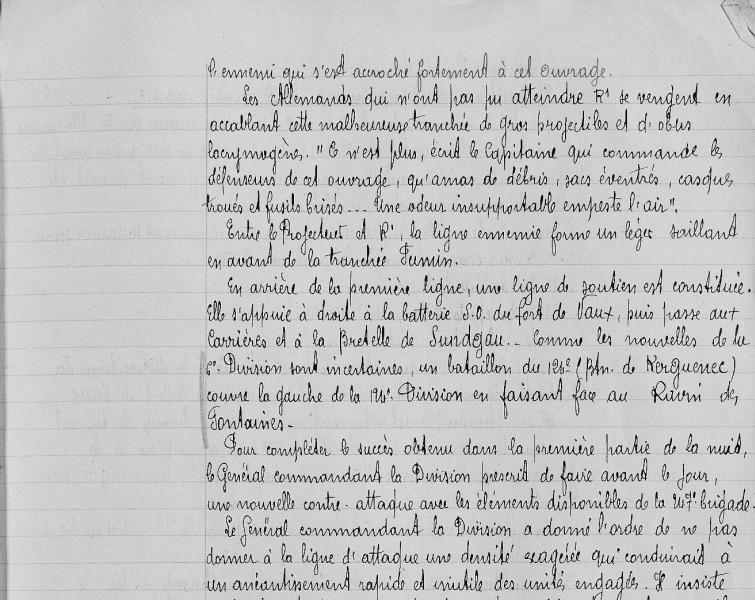 l'ennemi qui s'est accroché fortement à cet ouvrage.
Les Allemands qui n'ont pas pu atteindre R¹ se vengent en
accablant cette malheureuse tranchée de gros projectiles et d'obus
lacrymogènes. "Ce n'est plus, écrit le Capitaine qui commande les
défenseurs de cet ouvrage, qu'amas de débris, sacs éventrés, casques
troués et fusils brisés --- Une odeur insupportable empeste l'air".
Entre le Projecteur et R¹, la ligne ennemie forme un léger saillant
en avant de la tranchée Fumin.
En arrière de la première ligne, une ligne de soutien est constituée.
Elle s'appuie à droite à la batterie S.O. du fort de Vaux, puis passe aux
Carrières et à la Bretelle de Sundgau. - Comme les nouvelles de la
6e. Division sont incertaines, un bataillon du 124e (Btn. de Kerguenec)
couvre la gauche de la 124e. Division en faisant face au Ravin des
Fontaines -
Pour compléter le succès obtenu dans la première partie de la nuit,
le Général commandant la Division prescrit de faire avant le jour,
une nouvelle contre-attaque avec les éléments disponibles de la 247e brigade.
Le Général commandant la Division a donné l'ordre de ne pas
donner à la ligne d'attaque une densité exagérée qui conduirait à
un anéantissement rapide et inutile des unités engagées. Il insiste